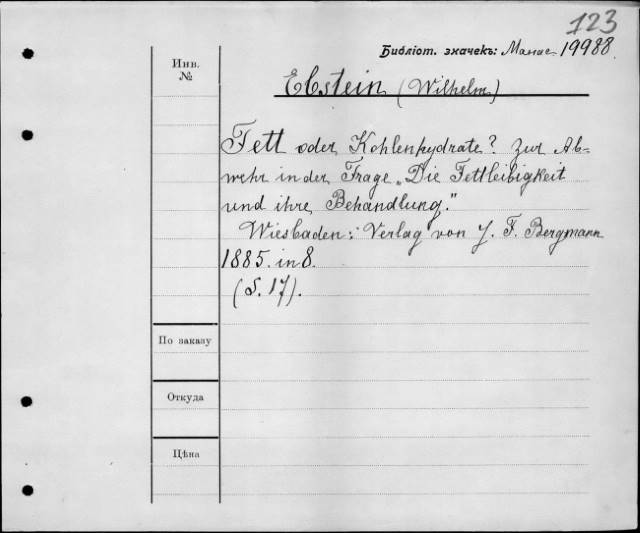 123
Инв.
№
Библіот. значекъ: Манас 19988
Ebstein (Wilhelm)
Fett oder Kohlenhydrate? Zur Ab=
wehr in der Frage „Die Fettleibigkeit
und ihre Behandlung."
Wiesbaden: Verlag von J. F. Bergmann
1885. in 8.
(S. 17).
По заказу
Откуда
Цѣна